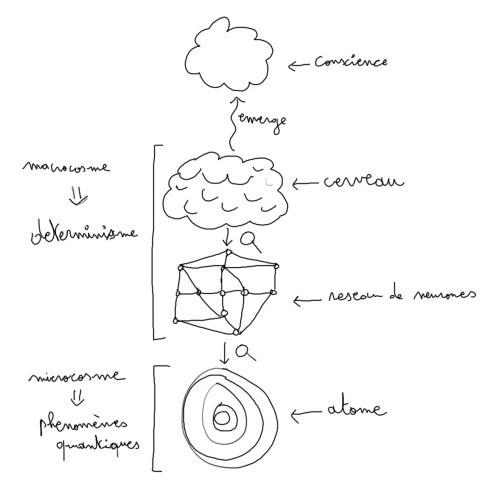 conscience
emerge
macrocosme
cerveau
determinisme
reseau de neurones
microcosme
phenomènes
quantiques
atome